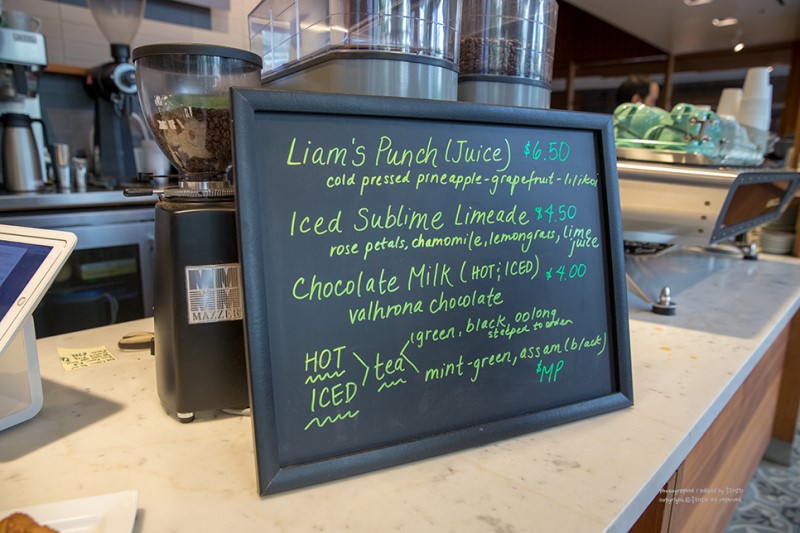 Liam's Punch (Juice) $6.50
cold pressed pineapple-grapefruit-lilikoi
Iced Sublime Limeade $4.50
rose petals, chamomile, lemongrass, lime
juice
Chocolate Milk (HOT; ICED) $4.00
valhrona chocolate
green, black, oolong
steeped to order
HOT
ICED
tea
mint-green, assam (black)
$MP
MAZZER